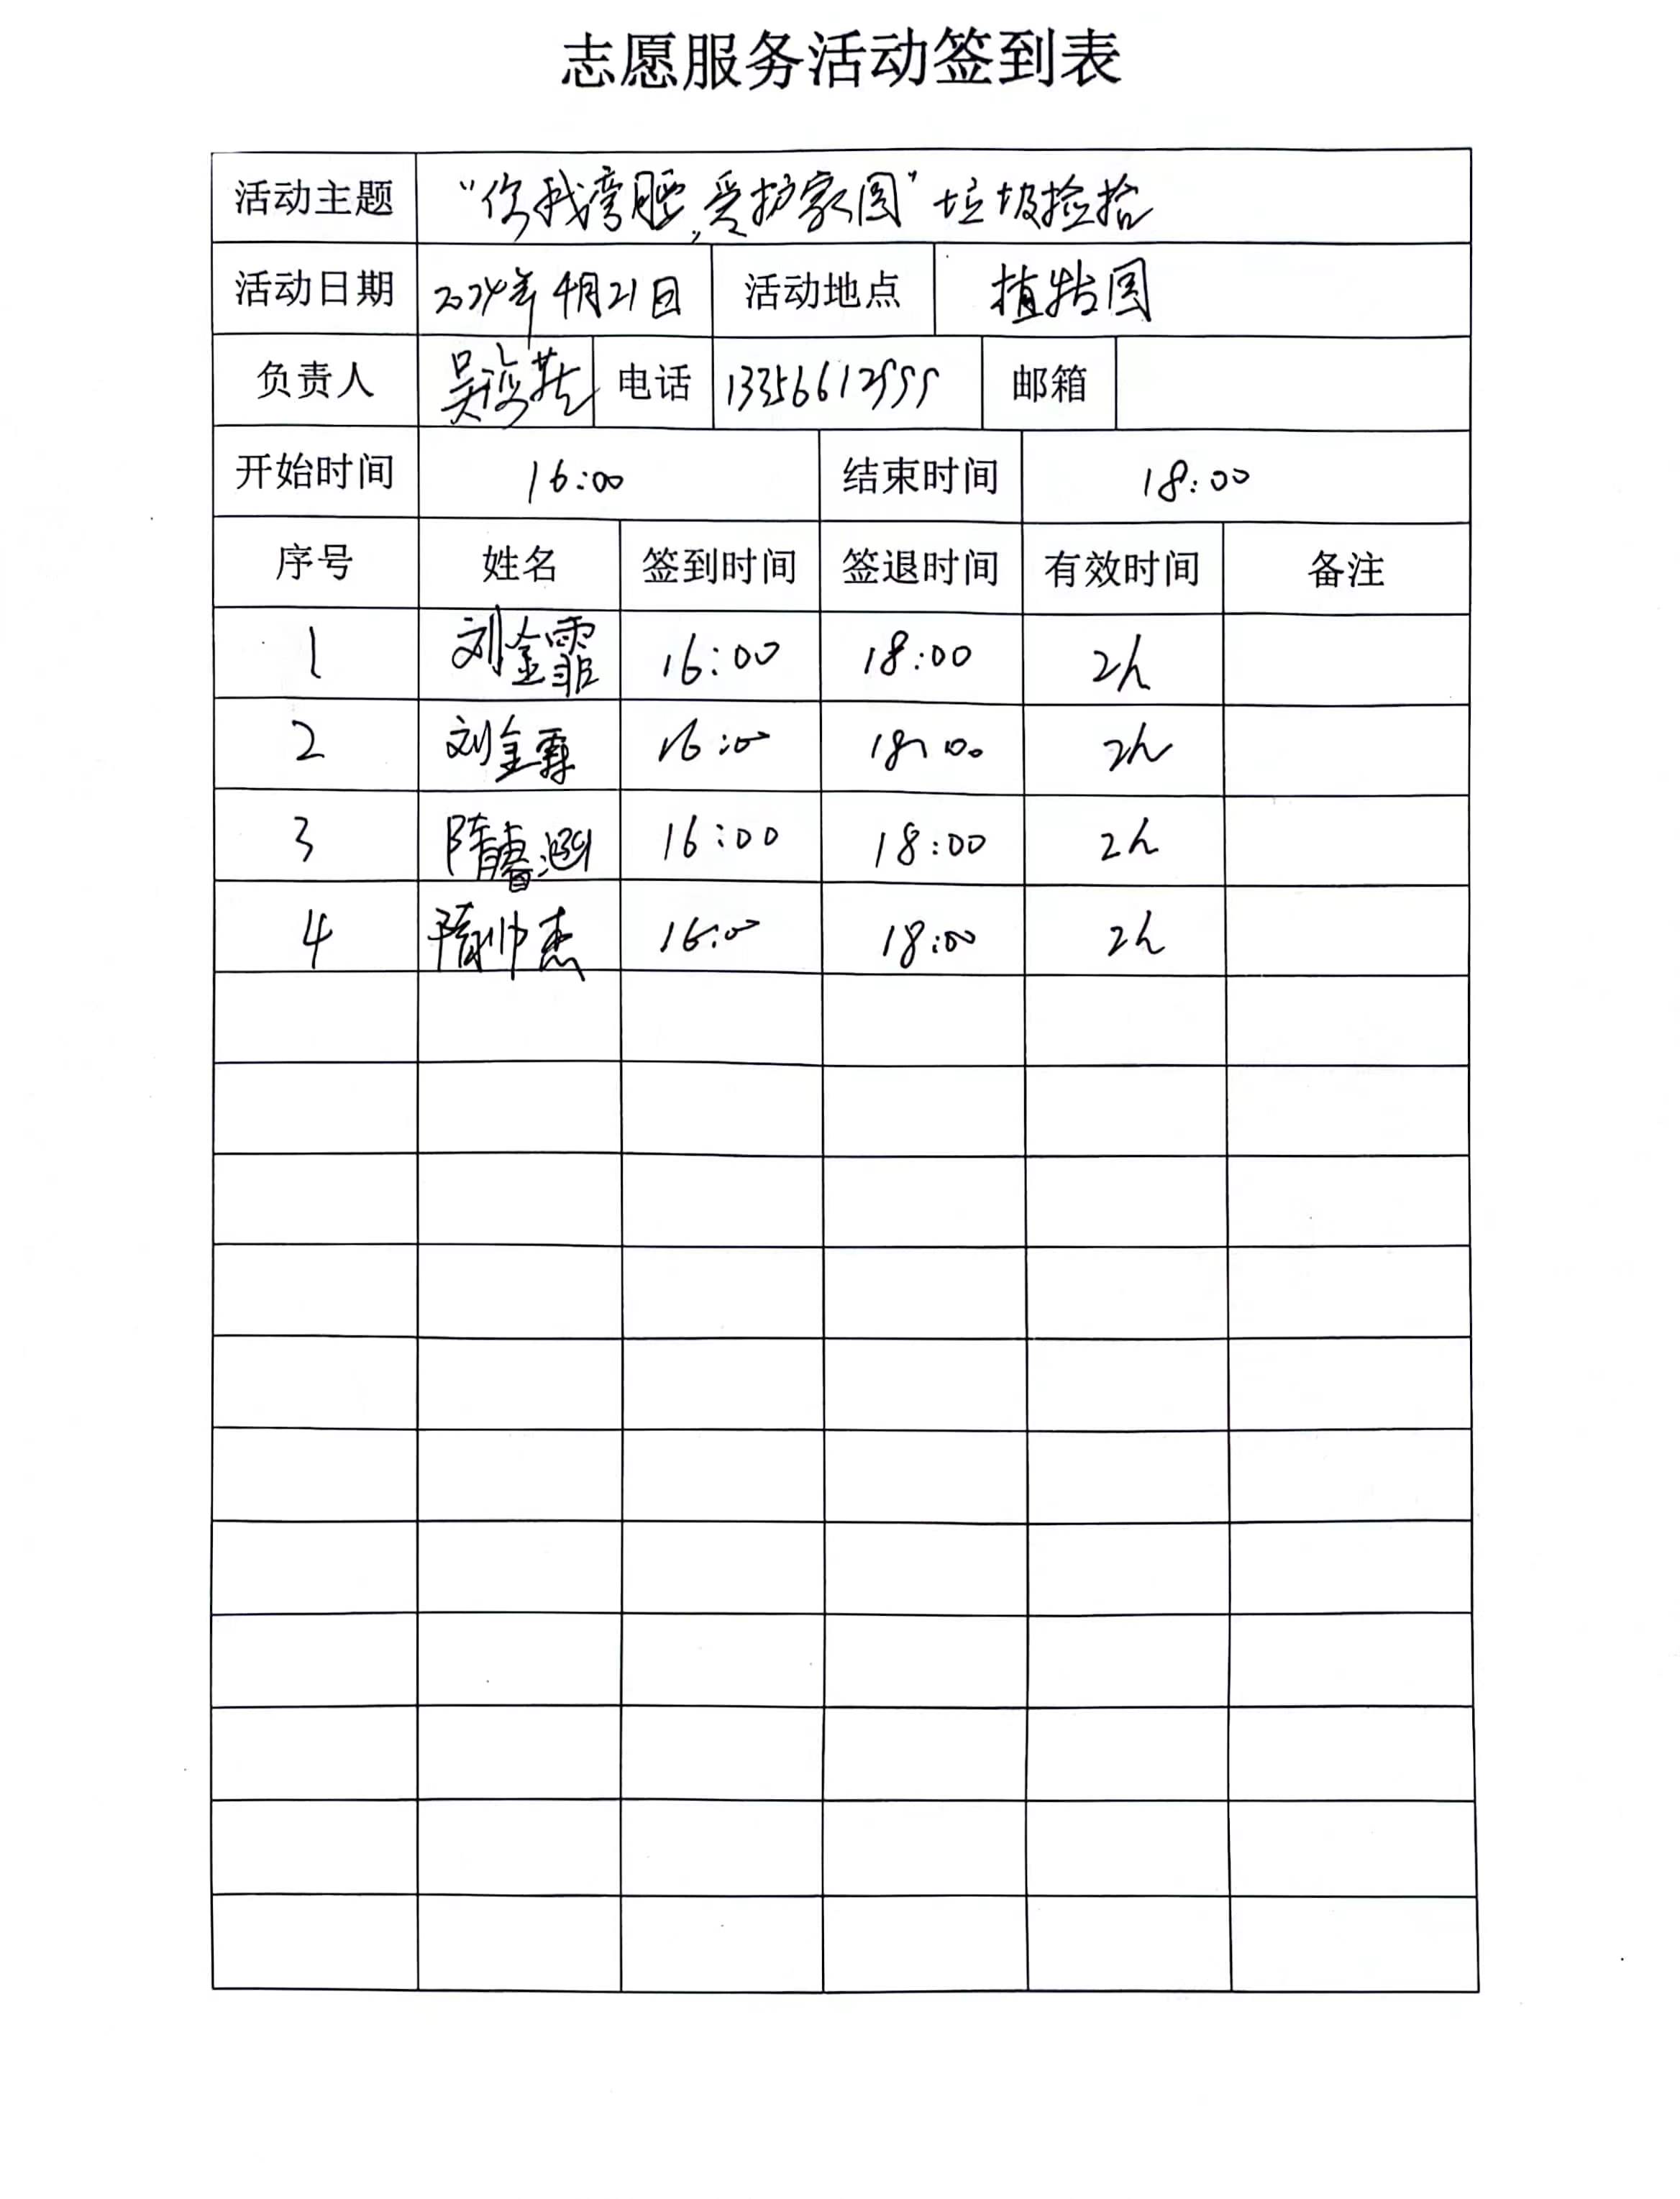 志愿服务活动签到表
活动主题 "你我弯腰,爱护家园"垃圾捡拾
活动日期 2024年4月21日 活动地点 植物园
负责人 吴 电话 邮箱
开始时间 16:00 结束时间 18:00
序号 姓名 签到时间 签退时间 有效时间 备注
1 刘金霏 16:00 18:00 2h
2 刘金霖 16:00 18:00 2h
3 隋睿涵 16:00 18:00 2h
4 隋帅杰 16:00 18:00 2h